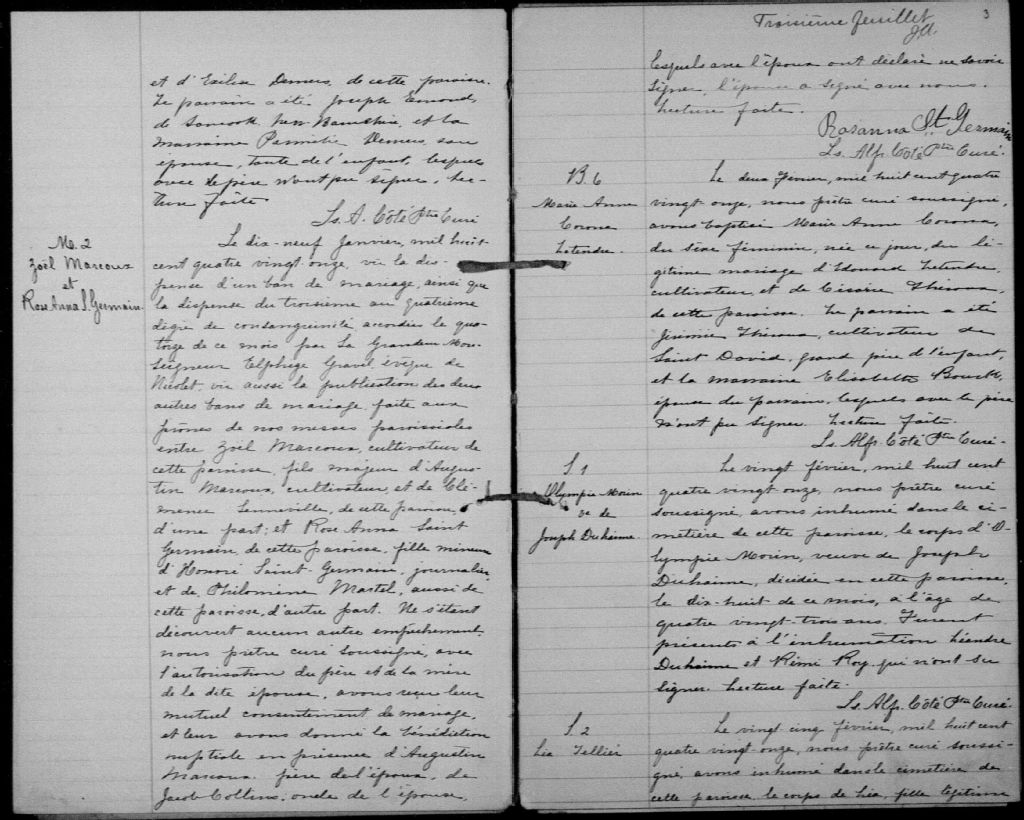 et d'Exilia Demers, de cette paroisse.
Le parrain a été Joseph Emond,
de Suncook New Hampshire, et la
marraine Parmélie Demers, son
épouse, tante de l'enfant, lesquels
avec le père n'ont pu signer. Lec-
ture faite
Ls. A. Côté Ptre Curé
M. 2
Zoël Marcoux
et
Rose Anna S. Germain.
Le dix-neuf Janvier, mil huit-
cent quatre vingt-onze, vu la dis-
pense d'un ban de mariage, ainsi que
la dispense du troisième au quatrième
dégré de consanguinité, accordées le qua-
torze de ce mois par Sa Grandeur Mon-
seigneur Elphège Gravel, évêque de
Nicolet, vu aussi la publication des deux
autres bans de mariage faite aux
prônes de nos messes paroissiales
entre Zoël Marcoux, cultivateur de
cette paroisse, fils majeur d'Augus-
tin Marcoux, cultivateur, et de Clé-
mence Lenneville, de cette paroisse,
d'une part; et Rose Anna Saint
Germain, de cette paroisse, fille mineure
d'Honoré Saint-Germain, journalier,
et de Philomène Martel, aussi de
cette paroisse, d'autre part. Ne s'étant
découvert aucun autre empêchement,
nous prêtre curé soussigné, avec
l'autorisation du père et de la mère
de la dite épouse, avons reçu leur
mutuel consentement de mariage,
et leur avons donné la bénédiction
nuptiale en présence d'Augustin
Marcoux père de l'époux, de
Jacob Collins, oncle de l'épouse,
3
Troisième feuillet
lesquels avec l'époux ont déclaré ne savoir
signer, l'épouse a signé avec nous.
Lecture faite.
Rosanna St Germain
Ls. Alf. Côté Ptre Curé.
B. 6
Marie Anne
Corona
Letendre.
Le deux Février, mil huit cent quatre
vingt-onze, nous prêtre curé soussigné,
avons baptisé Marie Anne Corona,
du sexe féminin, née ce jour, du lé-
gitime mariage d'Edouard Letendre,
cultivateur, et de Théroux,
de cette paroisse. Le parrain a été
Jérémie Théroux, cultivateur de
Saint David, grand père de l'enfant,
et la marraine Elisabeth
épouse du parrain, lesquels avec le père
n'ont pu signer. Lecture faite.
Ls. Alf. Côté Ptre Curé.
S. 1
Olympie Morin
ve de
Joseph Duhaime.
Le vingt février, mil huit cent
quatre vingt onze, nous prêtre curé
soussigné, avons inhumé dans le ci-
metière de cette paroisse, le corps d'O-
lympie Morin, veuve de Joseph
Duhaime, décédée en cette paroisse,
le dix-huit de ce mois, à l'âge de
quatre vingt-trois ans. Furent
présents à l'inhumation Léandre
Duhaime et Rémi Roy qui n'ont su
signer. Lecture faite.
Ls. Alf. Côté Ptre Curé.
S. 2
Léa Tellier
Le vingt cinq février, mil huit cent
quatre vingt-onze, nous prêtre curé soussi-
gné, avons inhumé dans le cimetière de
cette paroisse, le corps de Léa, fille légitime